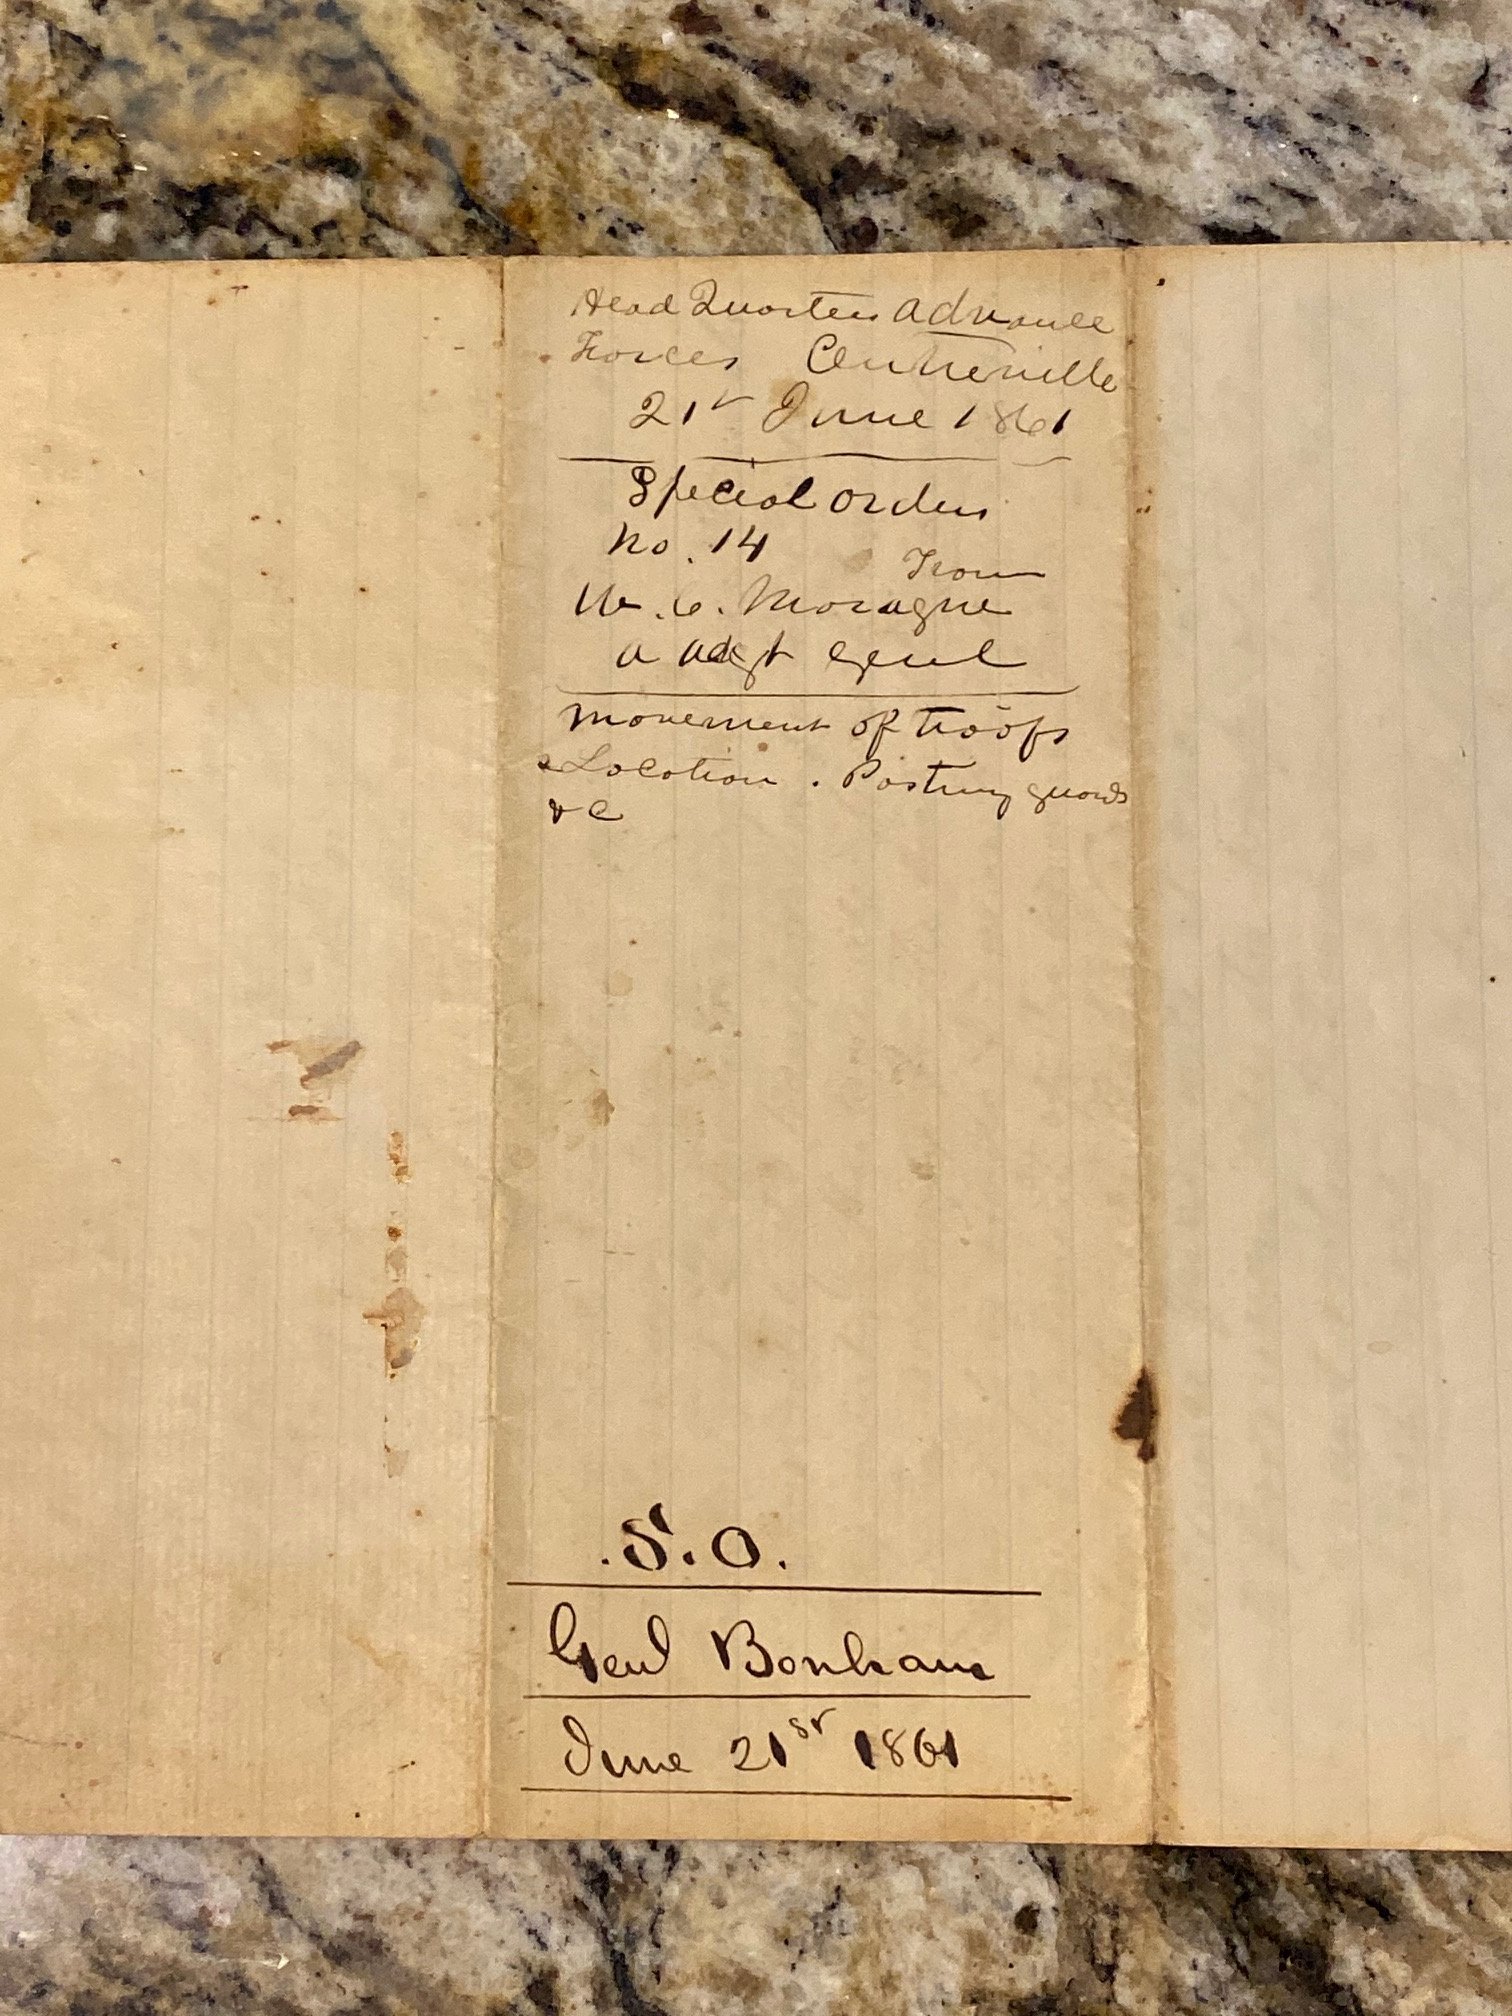 Head Quarters advance
Forces Centreville
21st June 1861
Special orders
No. 14
From
W. C. Moragne
a adgt genl
movement of troops
& Location . Posting guards
& C
.S.O.
Genl Bonham
June 21st 1861